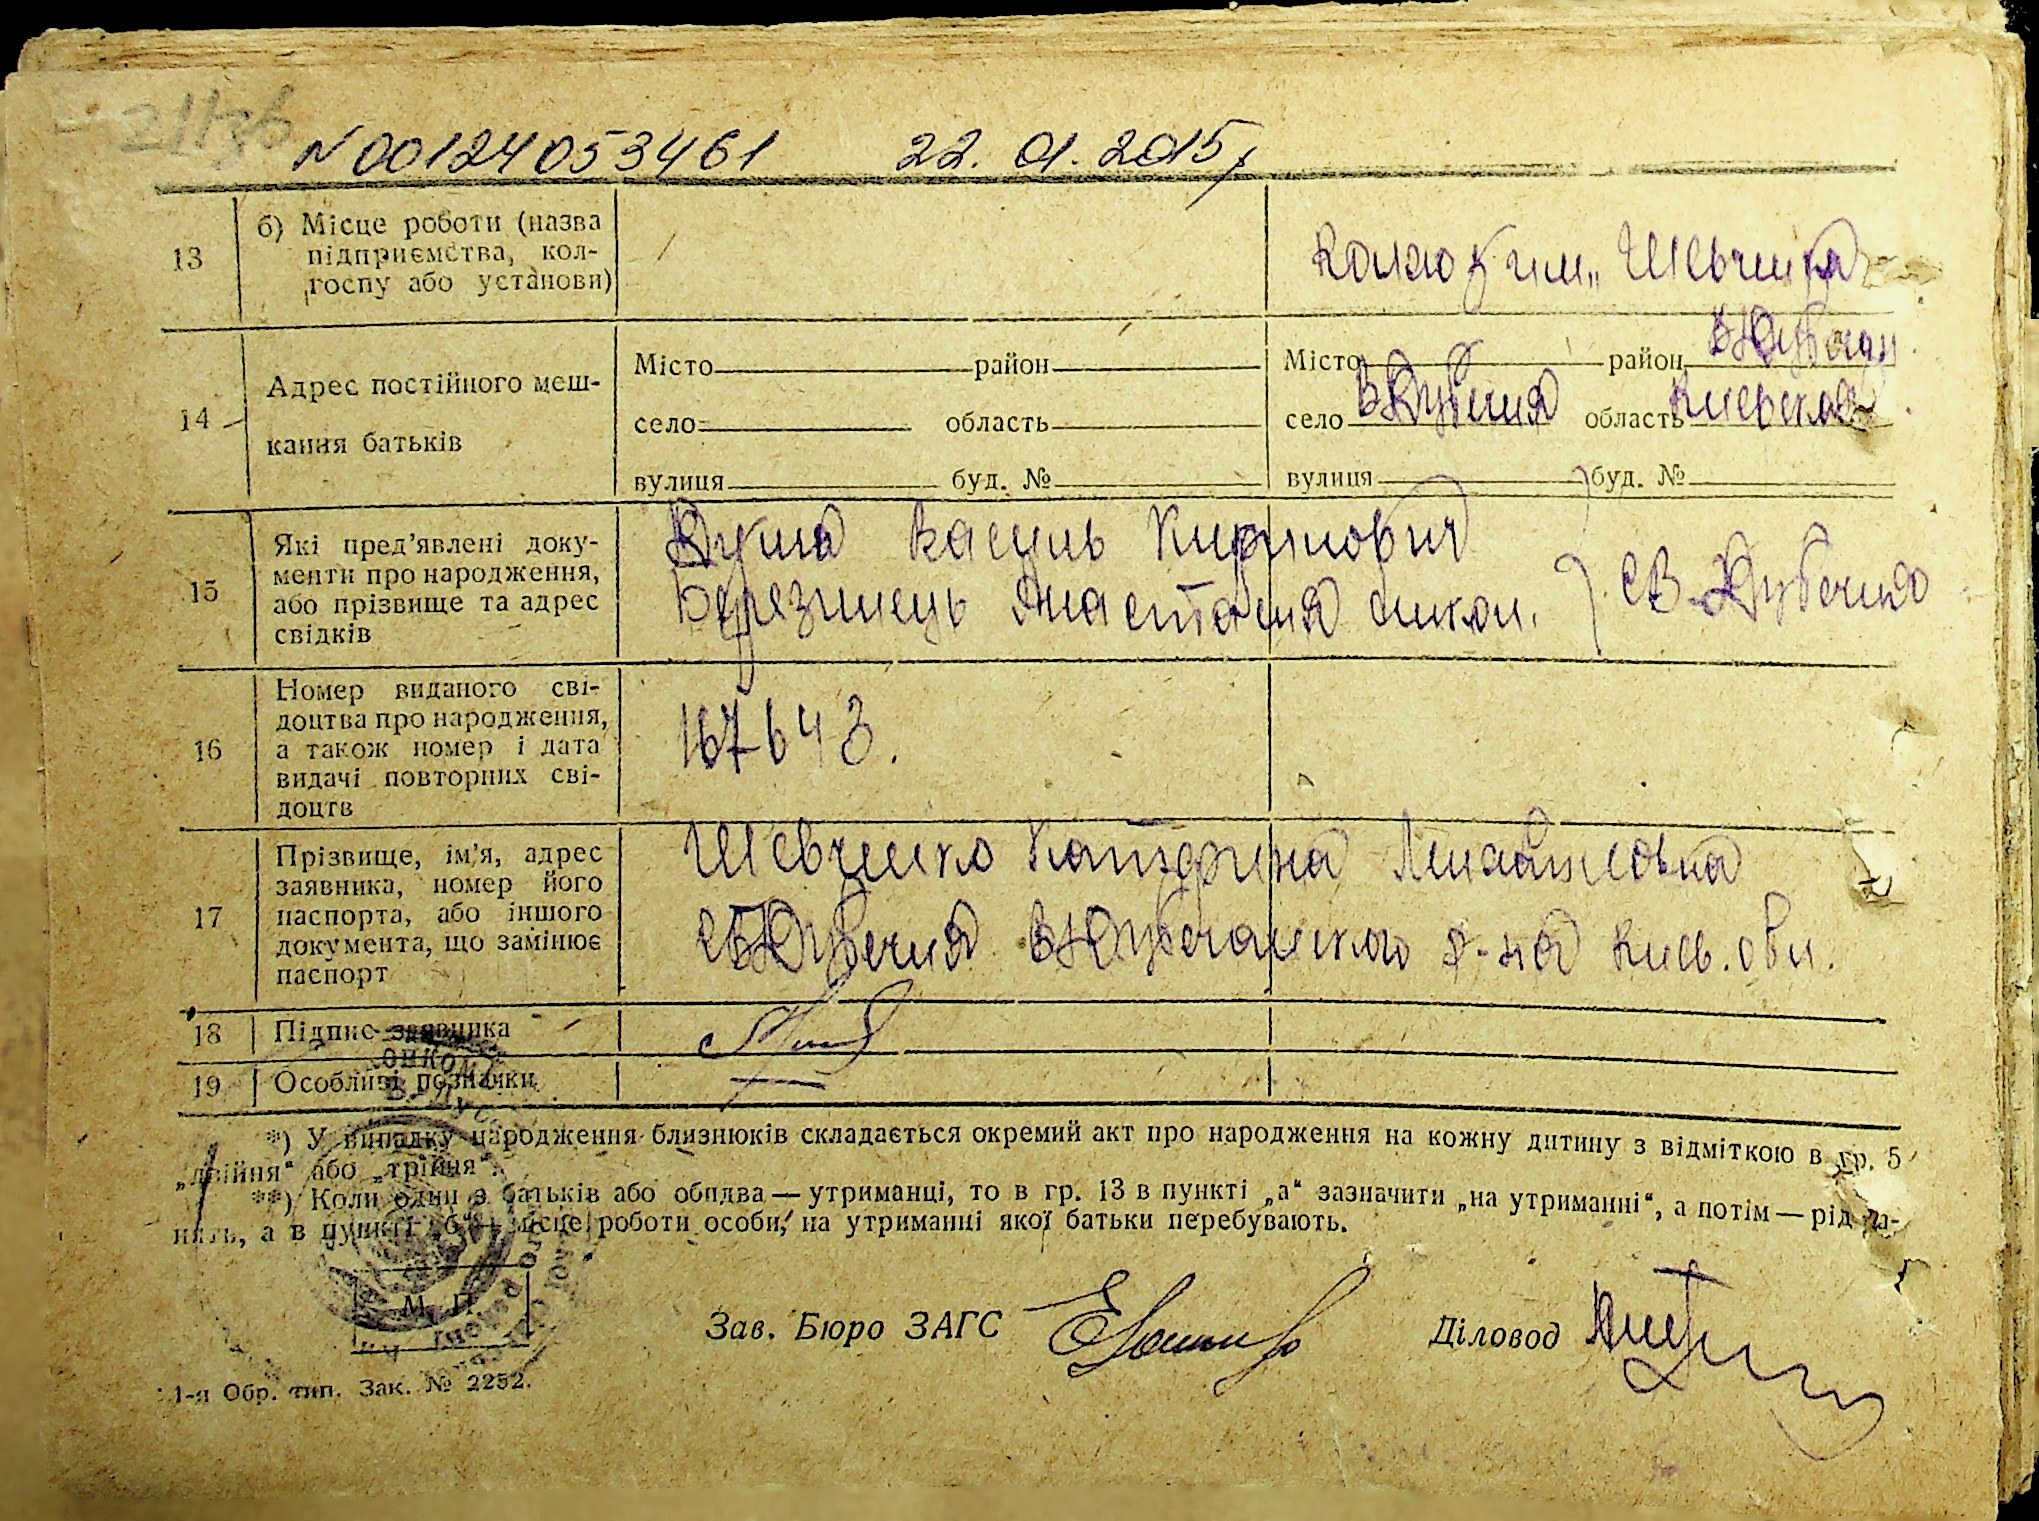 N 00124053461 22.01.2015
13 б) Місце роботи (назва
підприємства, кол-
госпу або установи)
Шевченка
14 Адрес постійного меш-
кання батьків
Місто район Місто район
село область село В Дубечня область Киевская
вулиця буд. № вулиця буд. №
15 Які пред’явлені доку-
менти про народження,
або прізвище та адрес
свідків
Василь
Березинець Анастасия
с В-Дубечня
16 Номер виданого сві-
доцтва про народження,
а також номер і дата
видачі повторних сві-
доцтв
167643.
17 Прізвище, ім’я, адрес
заявника, номер його
паспорта, або іншого
документа, що замінює
паспорт
Шевченко Катерина Михайловна
с В Дубечня В Дубечанского р-на Киев. обл.
18 Підпис заявника
19 Особливі позначки
*) У випадку народження близнюків складається окремий акт про народження на кожну дитину з відміткою в гр. 5
„двійня“ або „трійня“.
**) Коли один з батьків або обидва — утриманці, то в гр. 13 в пункті „а“ зазначити „на утриманні“, а потім — рід за-
нять, а в пункті „б“ — місце роботи особи, на утриманні якої батьки перебувають.
М. П.
Зав. Бюро ЗАГС Діловод
1-я Обр. тип. Зак. № 2252.